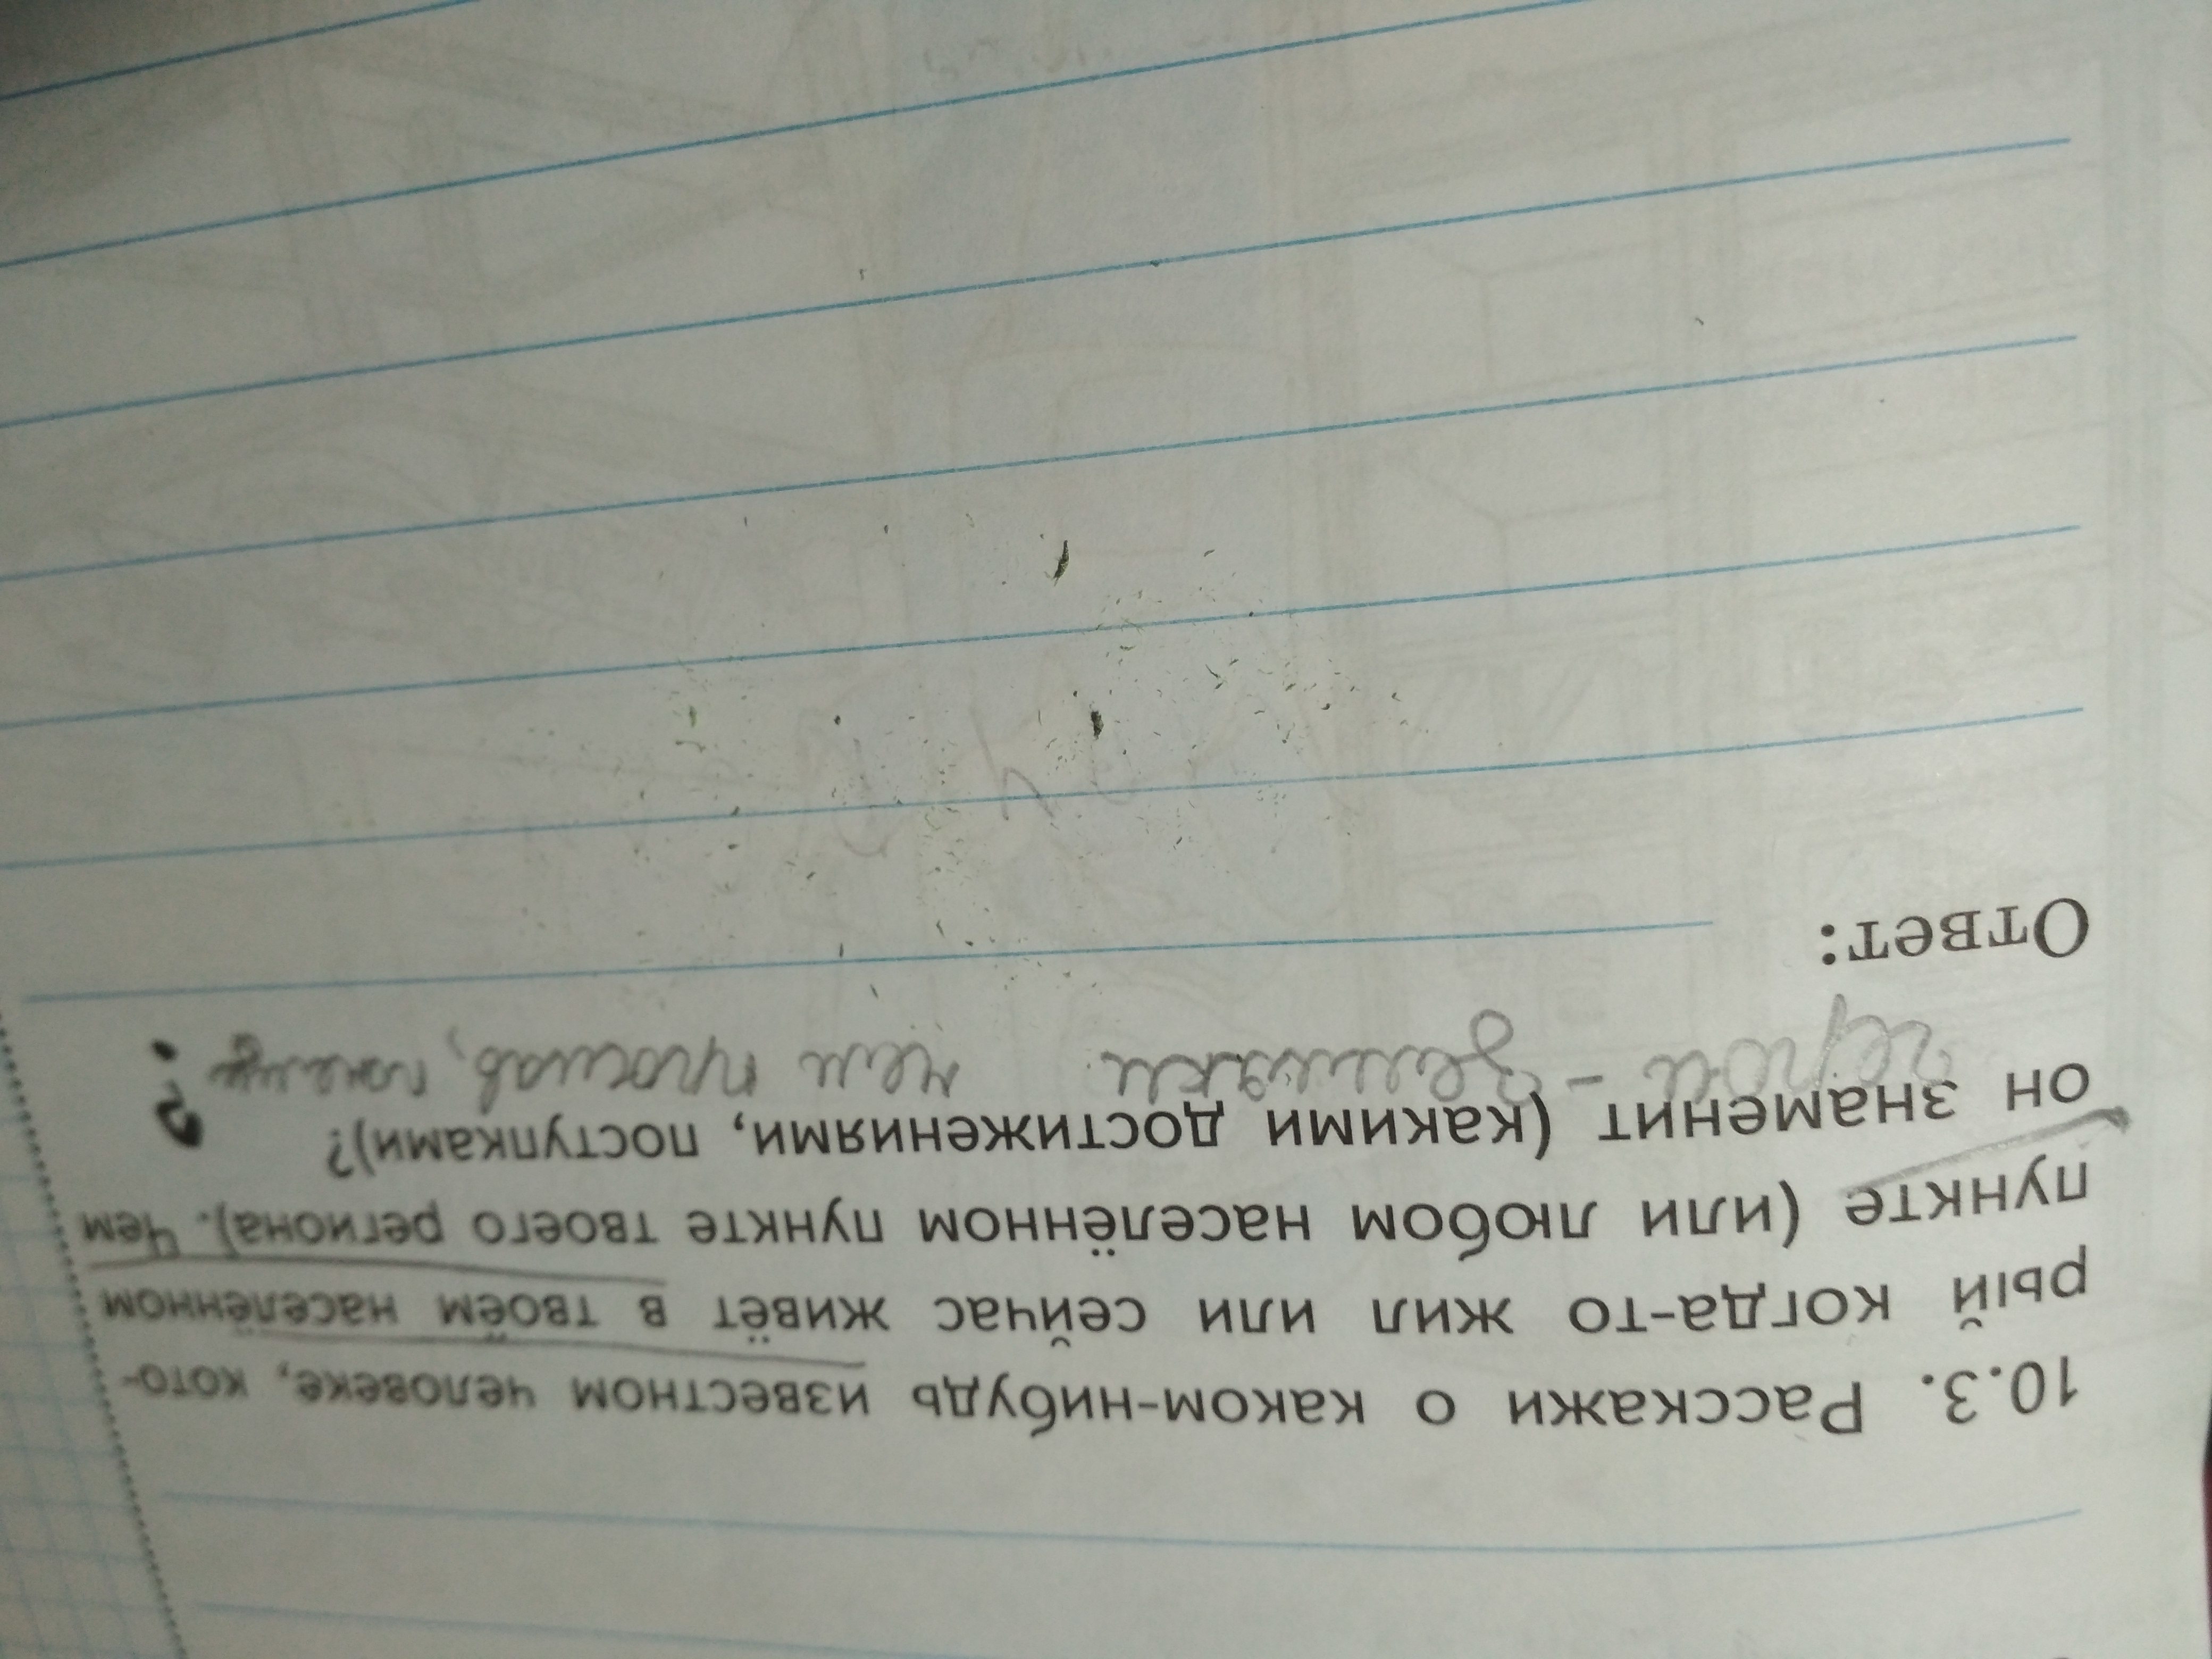 10.3. Расскажи о каком-нибудь известном человеке, кото-
рый когда-то жил или сейчас живёт в твоём населённом
пункте (или любом населённом пункте твоего региона). Чем
он знаменит (какими достижениями, поступками)?
герои - земляки чем прослав, почему ?
Ответ: